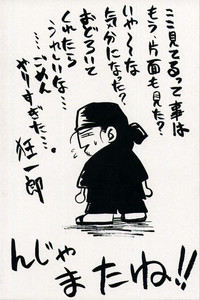 ここ見てるって事は
もう、片面も見た?
いや〜な
気分になった?
おどろいて
くれたら
うれしいな…
……ごめん
やりすぎた…。
狂一郎
んじゃ
またね!!